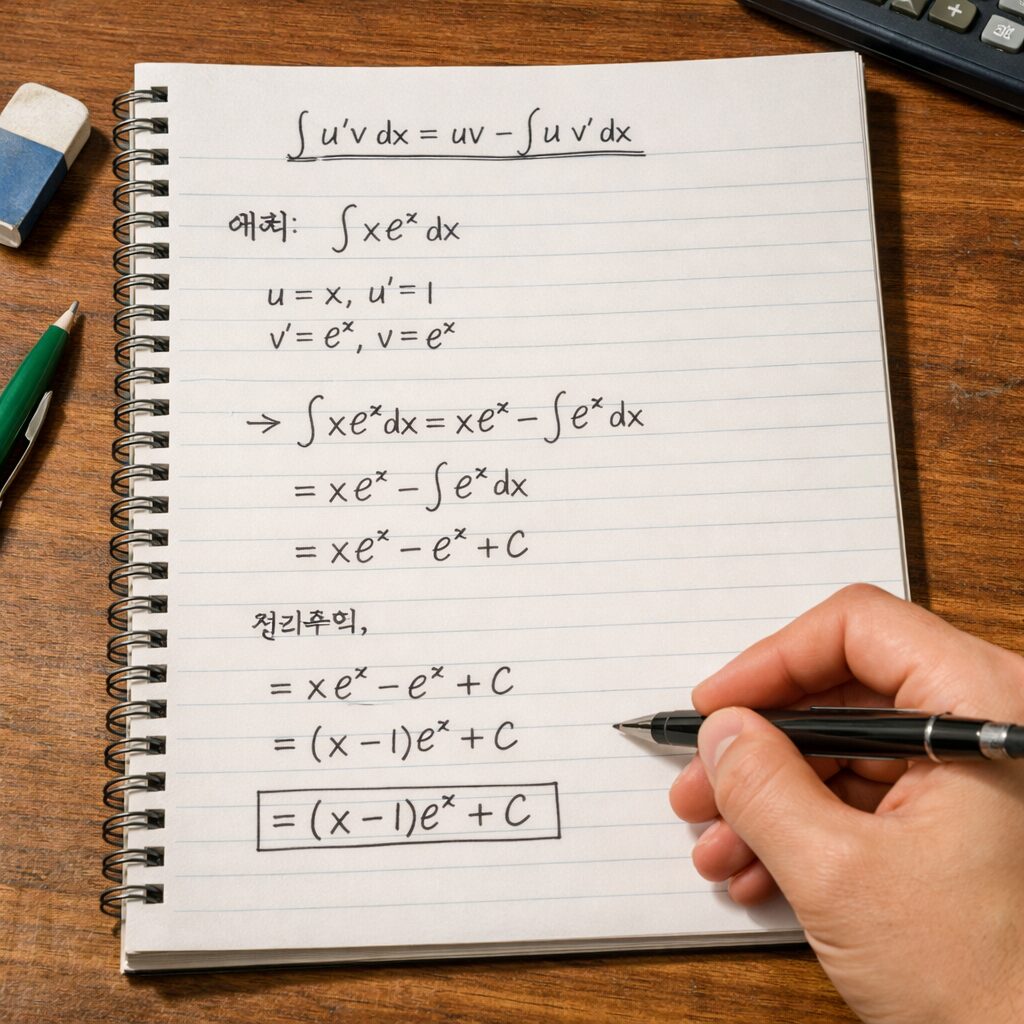 ∫ u'v dx = uv − ∫ u v' dx
∫ x eˣ dx
u = x, u' = 1
v' = eˣ, v = eˣ
→ ∫ x eˣ dx = x eˣ − ∫ eˣ dx
= x eˣ − ∫ eˣ dx
= x eˣ − eˣ + C
= x eˣ − eˣ + C
= (x − 1)eˣ + C
= (x − 1)eˣ + C
+